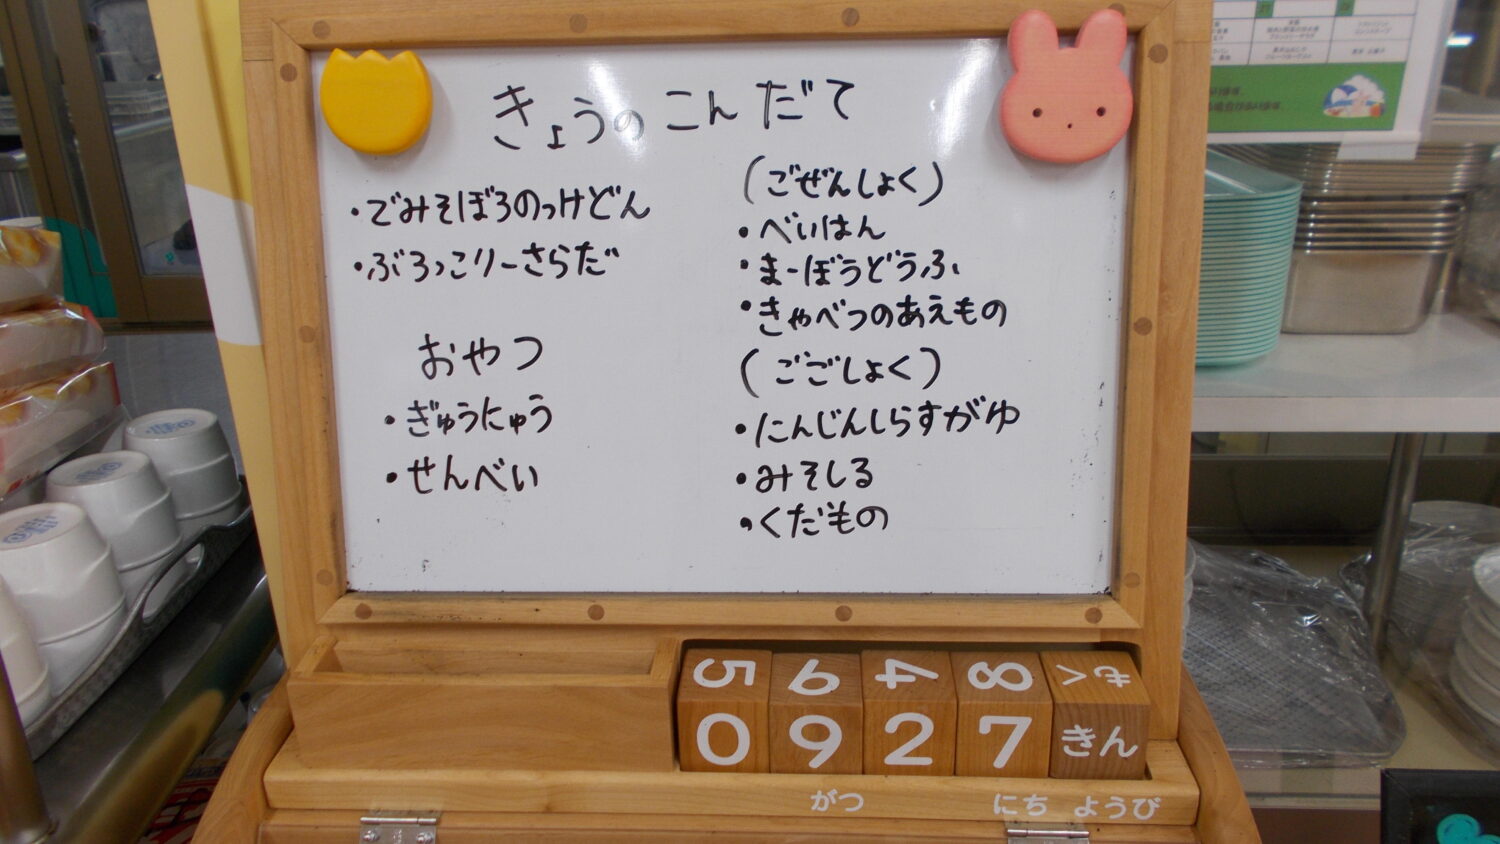 きょうのこんだて
・でみそぼろのっけどん
・ぶろっこりーさらだ
おやつ
・ぎゅうにゅう
・せんべい
(ごぜんしょく)
・べいはん
・まーぼうどうふ
・きゃべつのあえもの
(ごごしょく)
・にんじんしらすがゆ
・みそしる
・くだもの
5 6 4 8 もく
0 9 2 7 きん
がつ にち ようび